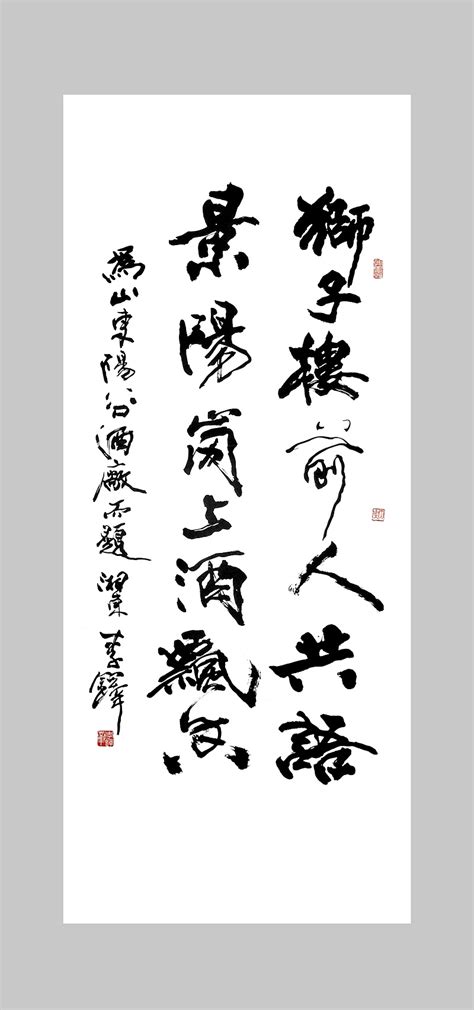 獅子樓前人共語
景陽崗上酒飄香
為山東陽谷酒廠而題 湘東 李鐸